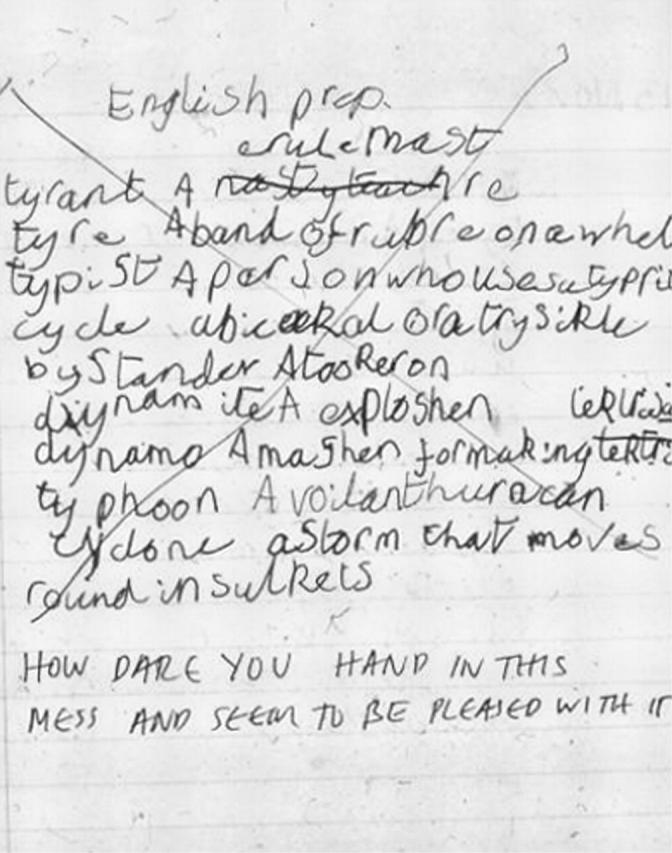 English prep.
erule mast
tyrant A nasty teach re
tyre A band of rubre on a whel
typist A person who uses a typri
cycle a bicoekal or a trysikle
bystander A tooker on
diynamite A exploshen lektrix
dynamo A mashen for making lektri
typhoon A voilant huracan
cyclone a storm that moves
round in sulkels
HOW DARE YOU HAND IN THIS
MESS AND SEEM TO BE PLEASED WITH IT